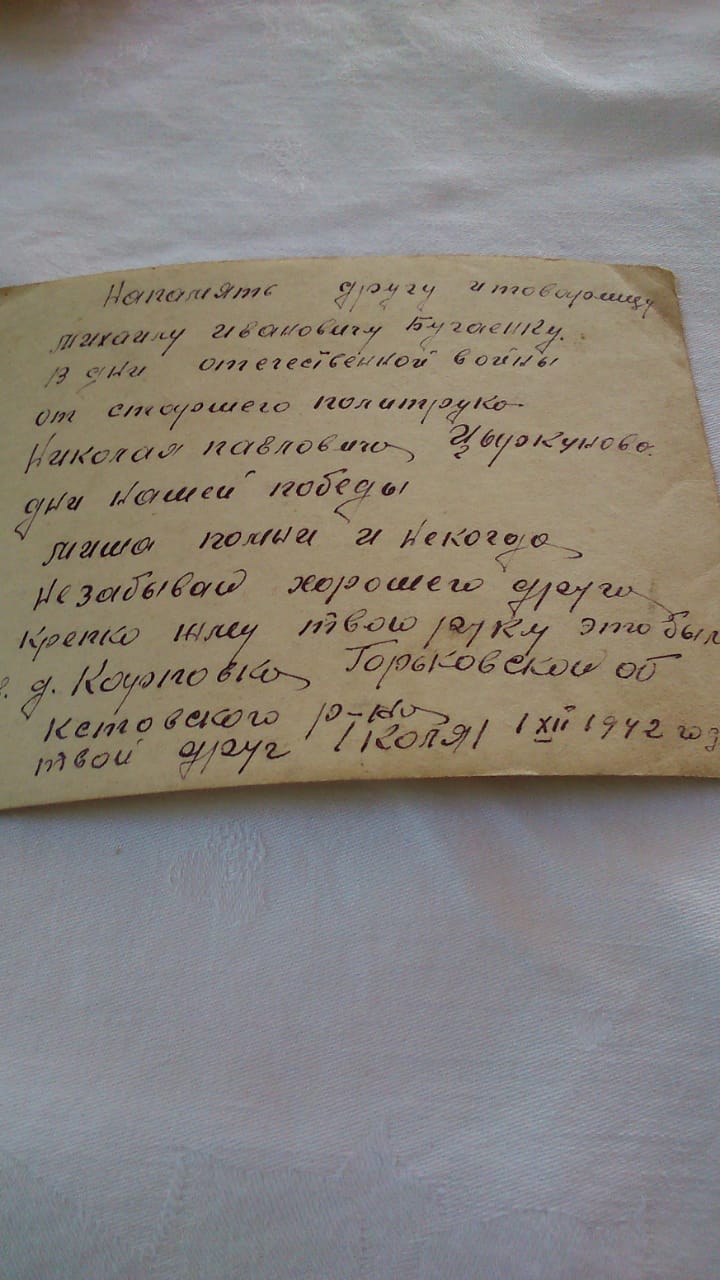 Напамять другу итоварищу
михаилу ивановичу Бугаенку.
в дни отечественной войны
от старшего политрука
Николая павловича Цыркунова.
дни нашей победы
миша помни и некогда
незабывай хорошего друга
крепко жму твою руку это был
в. д. Горьковской об
кстовского р-на
твой друг /Коля/ 1 XII 1942 год